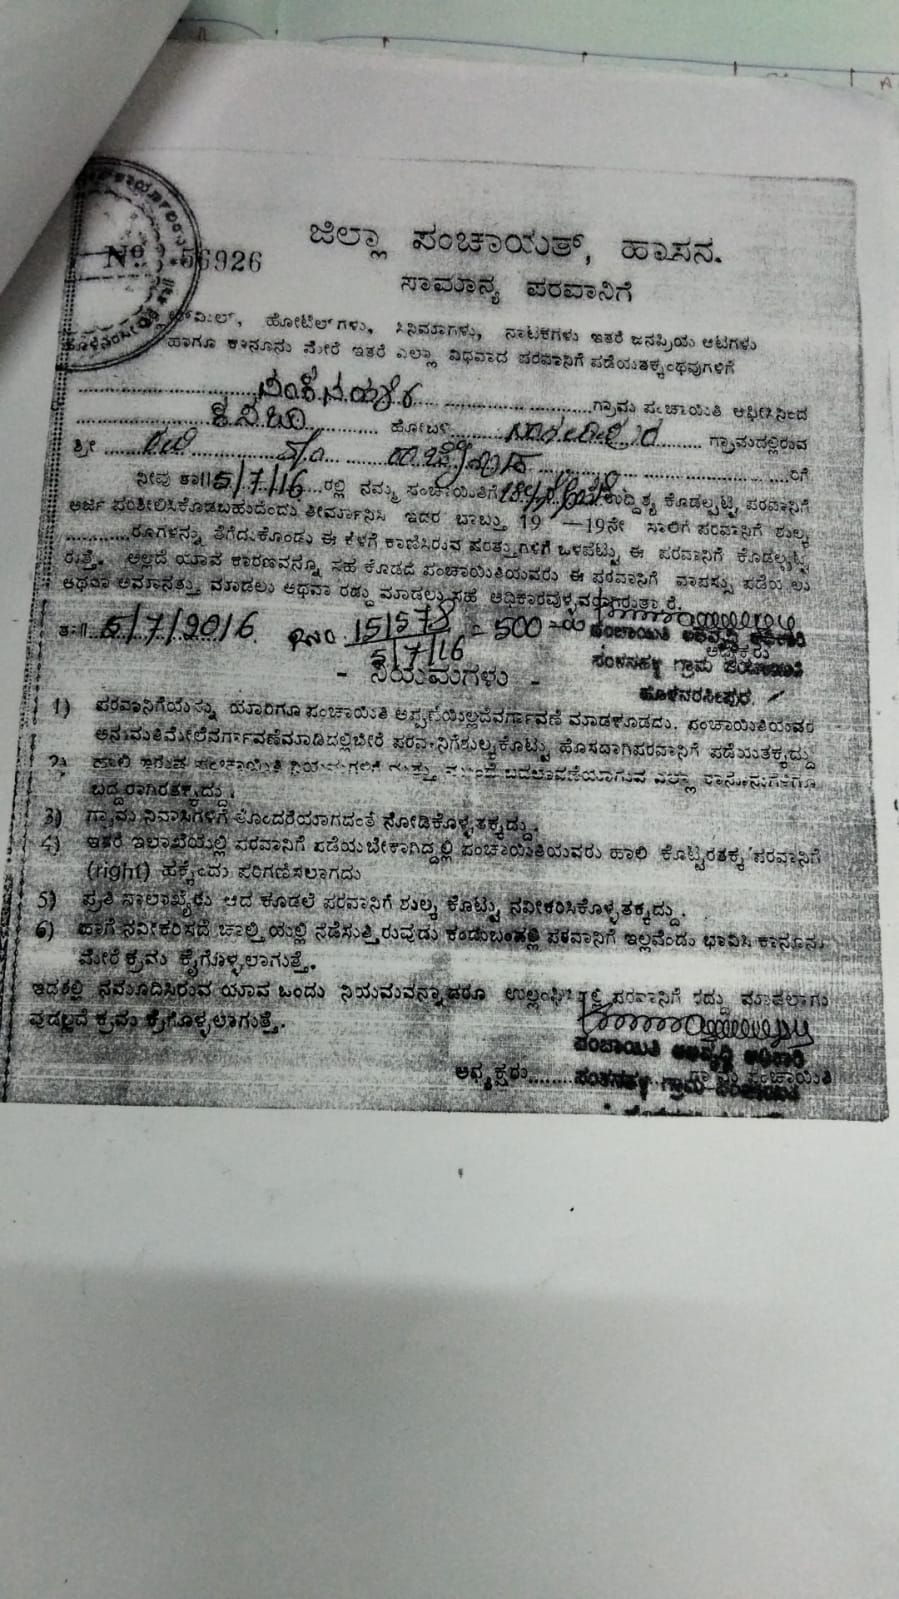 No 56926
ಜಿಲ್ಲಾ ಪಂಚಾಯತ್, ಹಾಸನ.
ಸಾಮಾನ್ಯ ಪರವಾನಿಗೆ
ಹೋಟೆಲ್‌ಗಳು, ಸಿನಿಮಾಗಳು, ನಾಟಕಗಳು ಇತರೆ ಜನಪ್ರಿಯ ಆಟಗಳು
ಹಾಗೂ ಕಾನೂನು ಮೇರೆ ಇತರೆ ಎಲ್ಲಾ ವಿಧವಾದ ಪರವಾನಿಗೆ ಪಡೆಯತಕ್ಕಂಥವುಗಳಿಗೆ
ಗ್ರಾಮ ಪಂಚಾಯಿತಿ ಆಫೀಸಿನಿಂದ
ಕಸಬಾ ಹೋಬಳಿ ಗ್ರಾಮದಲ್ಲಿರುವ
ಶ್ರೀ ರವಿ S/o ರಿಗೆ
ನೀವು ತಾ|| 5/7/16 ರಲ್ಲಿ ನಮ್ಮ ಪಂಚಾಯಿತಿಗೆ ಉದ್ದಿಶ್ಯ ಕೊಡಲ್ಪಟ್ಟ ಪರವಾನಿಗೆ
ಅರ್ಜಿ ಪರಿಶೀಲಿಸಿಕೊಡಬಹುದೆಂದು ತೀರ್ಮಾನಿಸಿ ಇದರ ಬಾಬ್ತು 19 —19ನೇ ಸಾಲಿಗೆ ಪರವಾನಿಗೆ ಶುಲ್ಕ
ರೂಗಳನ್ನು ತೆಗೆದುಕೊಂಡು ಈ ಕೆಳಗೆ ಕಾಣಿಸಿರುವ ಷರತ್ತುಗಳಿಗೆ ಒಳಪಟ್ಟು ಈ ಪರವಾನಿಗೆ ಕೊಡಲ್ಪಟ್ಟಿ
ರುತ್ತೆ. ಅಲ್ಲದೆ ಯಾವ ಕಾರಣವನ್ನೂ ಸಹ ಕೊಡದೆ ಪಂಚಾಯಿತಿಯವರು ಈ ಪರವಾನಿಗೆ ವಾಪಸ್ಸು ಪಡೆಯಲು
ಅಥವಾ ಅಮಾನತ್ತು ಮಾಡಲು ಅಥವಾ ರದ್ದು ಮಾಡಲು ಸಹ ಅಧಿಕಾರವುಳ್ಳವರಾಗಿರುತ್ತಾರೆ.
ತಾ|| 5/7/2016. R No 151578 = 500 =00 ಪಂಚಾಯಿತಿ ಅಭಿವೃದ್ಧಿ ಅಧಿಕಾರಿ
5/7/16 ಅಧ್ಯಕ್ಷರು
ಗ್ರಾಮ ಪಂಚಾಯಿತಿ
- ನಿಯಮಗಳು -
ಹೊಳೆನರಸೀಪುರ
1) ಪರವಾನಿಗೆಯನ್ನು ಯಾರಿಗೂ ಪಂಚಾಯಿತಿ ಅಪ್ಪಣೆಯಿಲ್ಲದೆವರ್ಗಾವಣೆ ಮಾಡಕೂಡದು. ಪಂಚಾಯಿತಿಯವರ
ಅನುಮತಿಮೇಲೆವರ್ಗಾವಣೆಮಾಡಿದಲ್ಲಿಬೇರೆ ಪರವಾನಿಗೆಶುಲ್ಕಕೊಟ್ಟು ಹೊಸದಾಗಿಪರವಾನಿಗೆ ಪಡೆಯತಕ್ಕದ್ದು
2) ಹಾಲಿ ಇರುವ ಪಂಚಾಯಿತಿ ನಿಯಮಗಳಿಗೆ ಮತ್ತು ಮುಂದೆ ಬದಲಾವಣೆಯಾಗುವ ಎಲ್ಲಾ ಕಾನೂನುಗಳಿಗೂ
ಬದ್ಧರಾಗಿರತಕ್ಕದ್ದು.
3) ಗ್ರಾಮ ನಿವಾಸಿಗಳಿಗೆ ತೊಂದರೆಯಾಗದಂತೆ ನೋಡಿಕೊಳ್ಳತಕ್ಕದ್ದು.
4) ಇತರೆ ಇಲಾಖೆಯಲ್ಲಿ ಪರವಾನಿಗೆ ಪಡೆಯಬೇಕಾಗಿದ್ದಲ್ಲಿ ಪಂಚಾಯಿತಿಯವರು ಹಾಲಿ ಕೊಟ್ಟಿರತಕ್ಕ ಪರವಾನಿಗೆ
(right) ಹಕ್ಕೆಂದು ಪರಿಗಣಿಸಲಾಗದು
5) ಪ್ರತಿ ಸಾಲಾಖೈರು ಆದ ಕೂಡಲೆ ಪರವಾನಿಗೆ ಶುಲ್ಕ ಕೊಟ್ಟು ನವೀಕರಿಸಿಕೊಳ್ಳತಕ್ಕದ್ದು.
6) ಹಾಗೆ ನವೀಕರಿಸದೆ ಚಾಲ್ತಿಯಲ್ಲಿ ನಡೆಸುತ್ತಿರುವುದು ಕಂಡುಬಂದಲ್ಲಿ ಪರವಾನಿಗೆ ಇಲ್ಲವೆಂದು ಭಾವಿಸಿ ಕಾನೂನು
ಮೇರೆ ಕ್ರಮ ಕೈಗೊಳ್ಳಲಾಗುತ್ತೆ.
ಇದರಲ್ಲಿ ನಮೂದಿಸಿರುವ ಯಾವ ಒಂದು ನಿಯಮವನ್ನಾದರೂ ಉಲ್ಲಂಘಿಸಿದಲ್ಲಿ ಪರವಾನಿಗೆ ರದ್ದು ಮಾಡಲಾಗು
ವುದಲ್ಲದೆ ಕ್ರಮ ಕೈಗೊಳ್ಳಲಾಗುತ್ತೆ.
ಪಂಚಾಯಿತಿ ಅಭಿವೃದ್ಧಿ ಅಧಿಕಾರಿ
ಅಧ್ಯಕ್ಷರು ಗ್ರಾಮ ಪಂಚಾಯಿತಿ